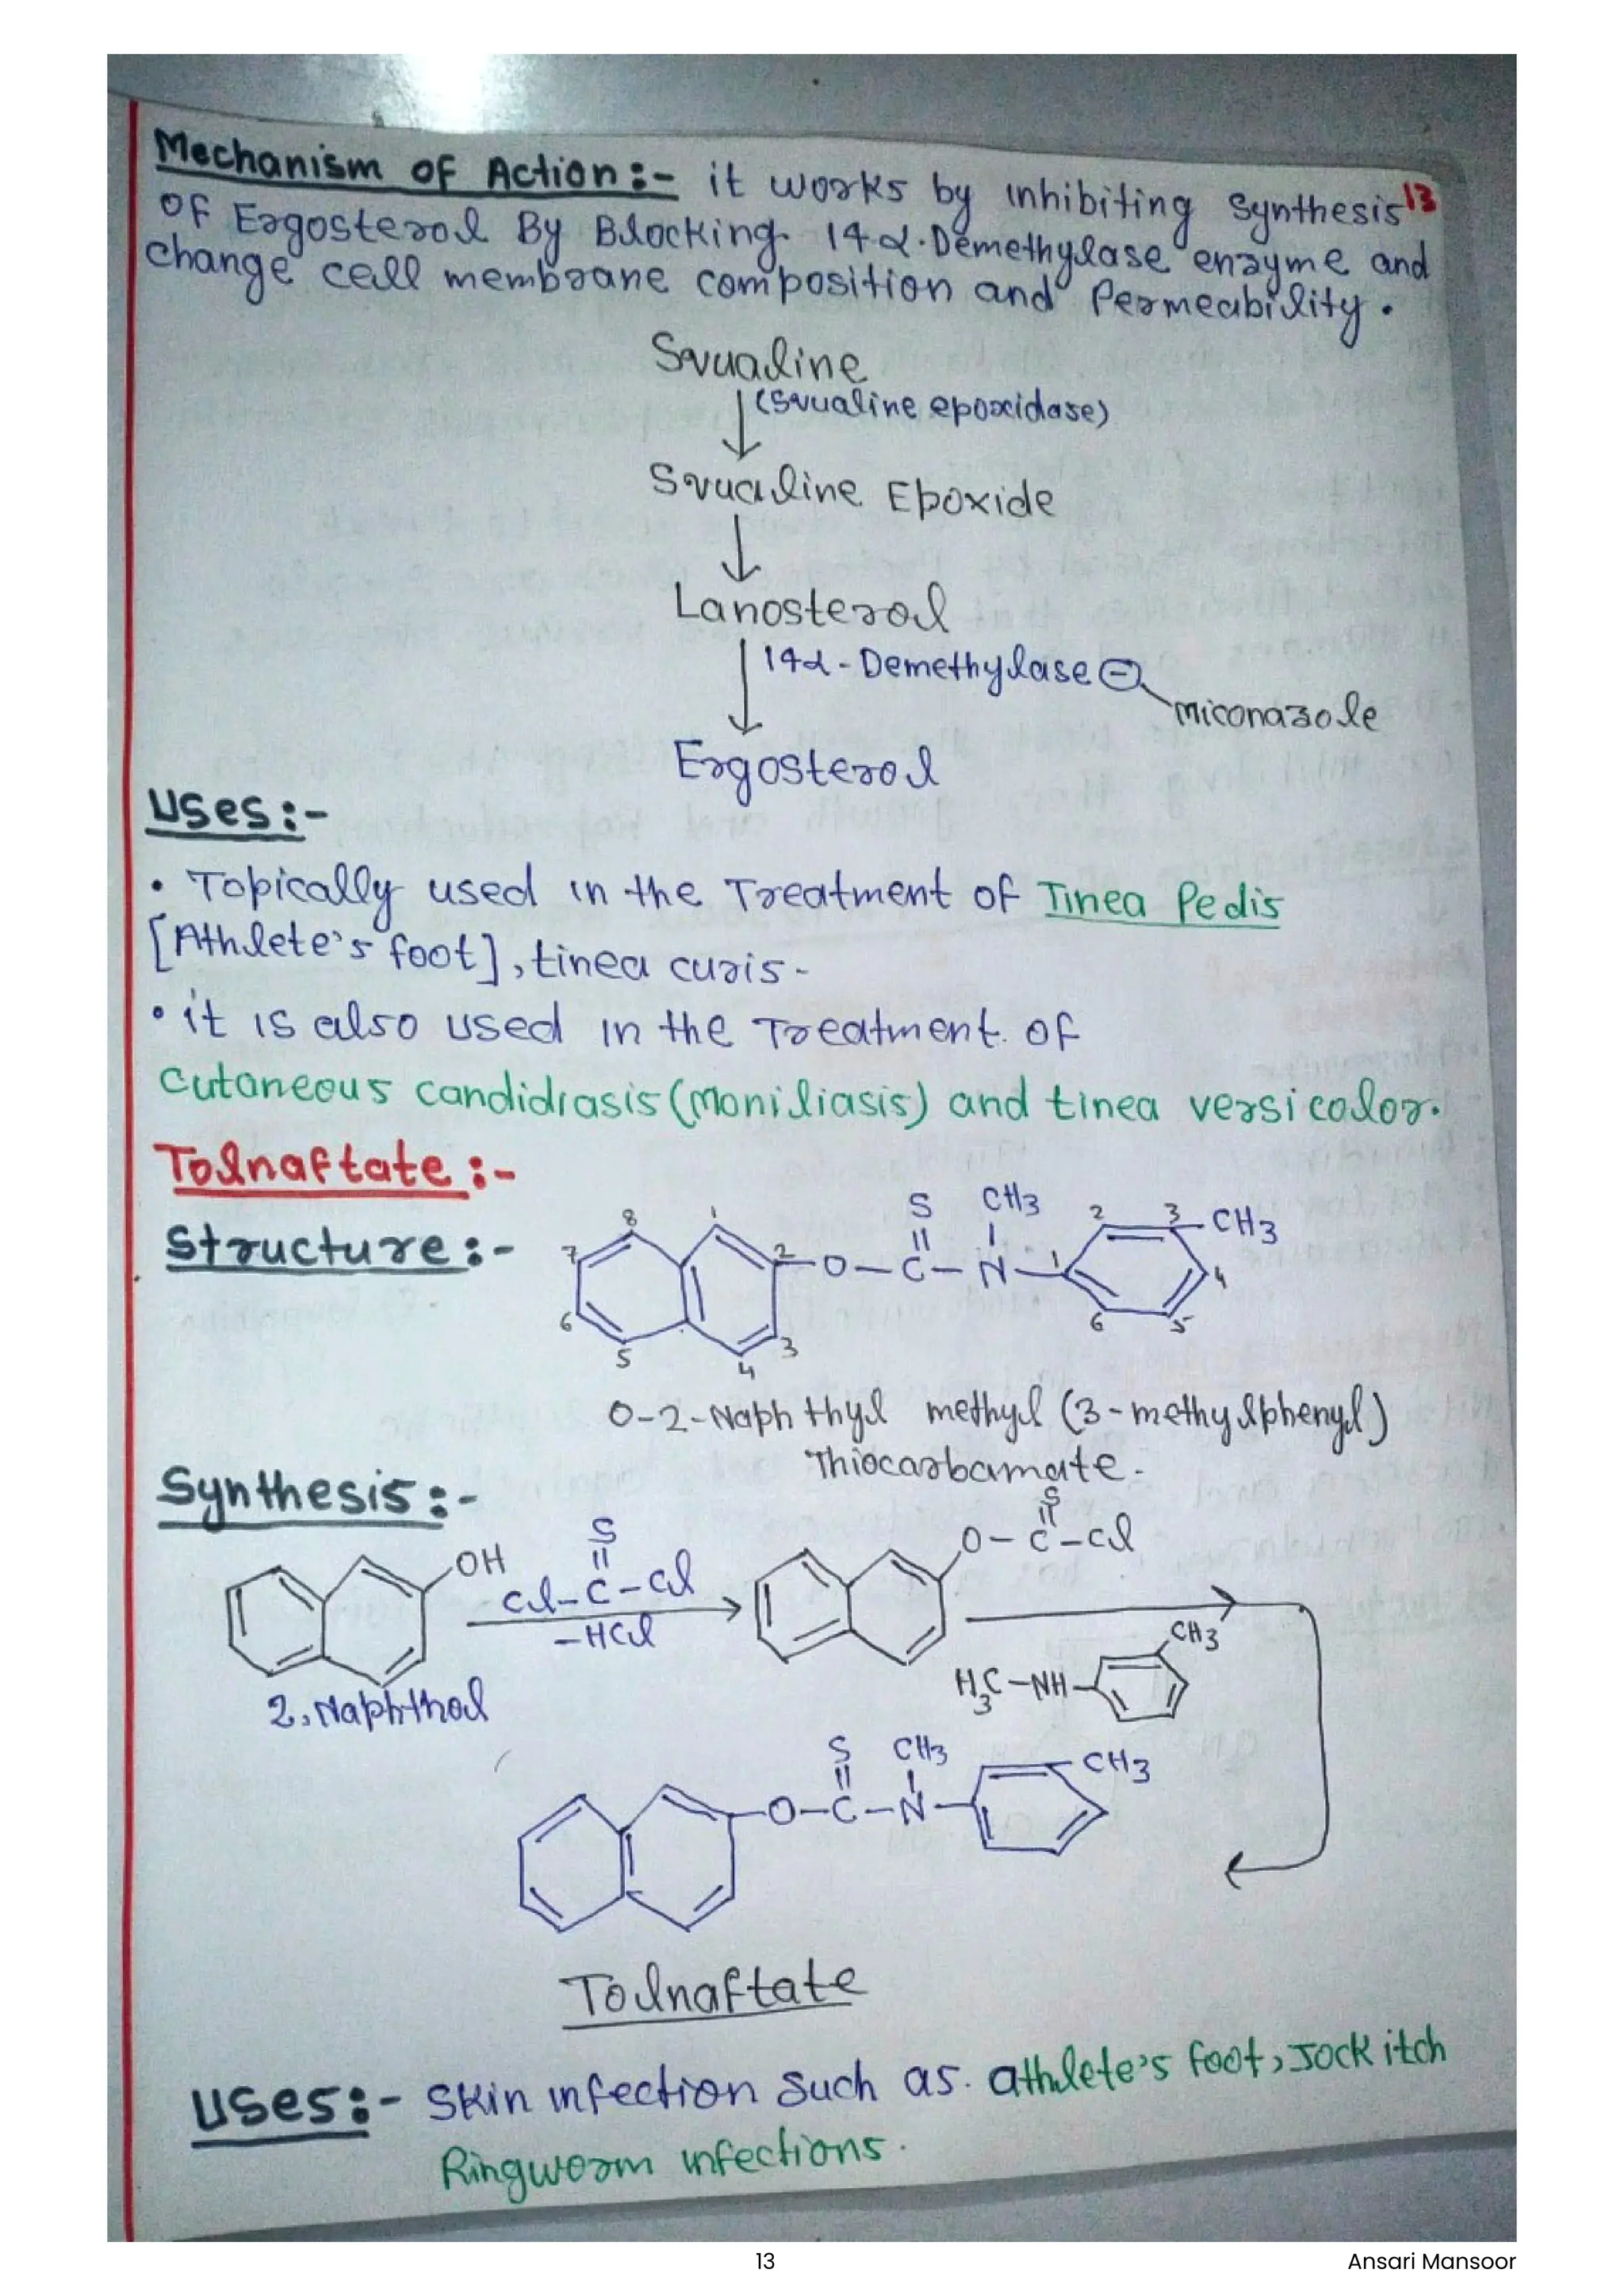 Mechanism of Action:- it works by inhibiting Synthesis 13
of Ergosterol By Blocking 14α-Demethylase enzyme and
change cell membrane composition and Permeability.
Squaline
(Squaline epoxidase)
Squaline Epoxide
Lanosterol
14α-Demethylase ⊖
miconazole
Ergosterol
Uses:-
• Topically used in the Treatment of Tinea Pedis
[Athlete's foot], tinea curis-
• it is also used in the Treatment of
Cutaneous candidiasis (moniliasis) and tinea versicolor.
Tolnaftate:-
Structure:-
8 1 S CH3 2 3 CH3
7 2 O-C-N 1 4
6 3 6 5
5 4
O-2-Naphthyl methyl (3-methylphenyl)
Thiocarbamate-
Synthesis:-
OH S O-C-Cl S
Cl-C-Cl
-HCl
CH3
H3C-NH
2, Naphthol
S CH3 CH3
O-C-N
Tolnaftate
Uses:- Skin infection such as. athlete's foot, Jock itch
Ringworm infections.
13 Ansari Mansoor